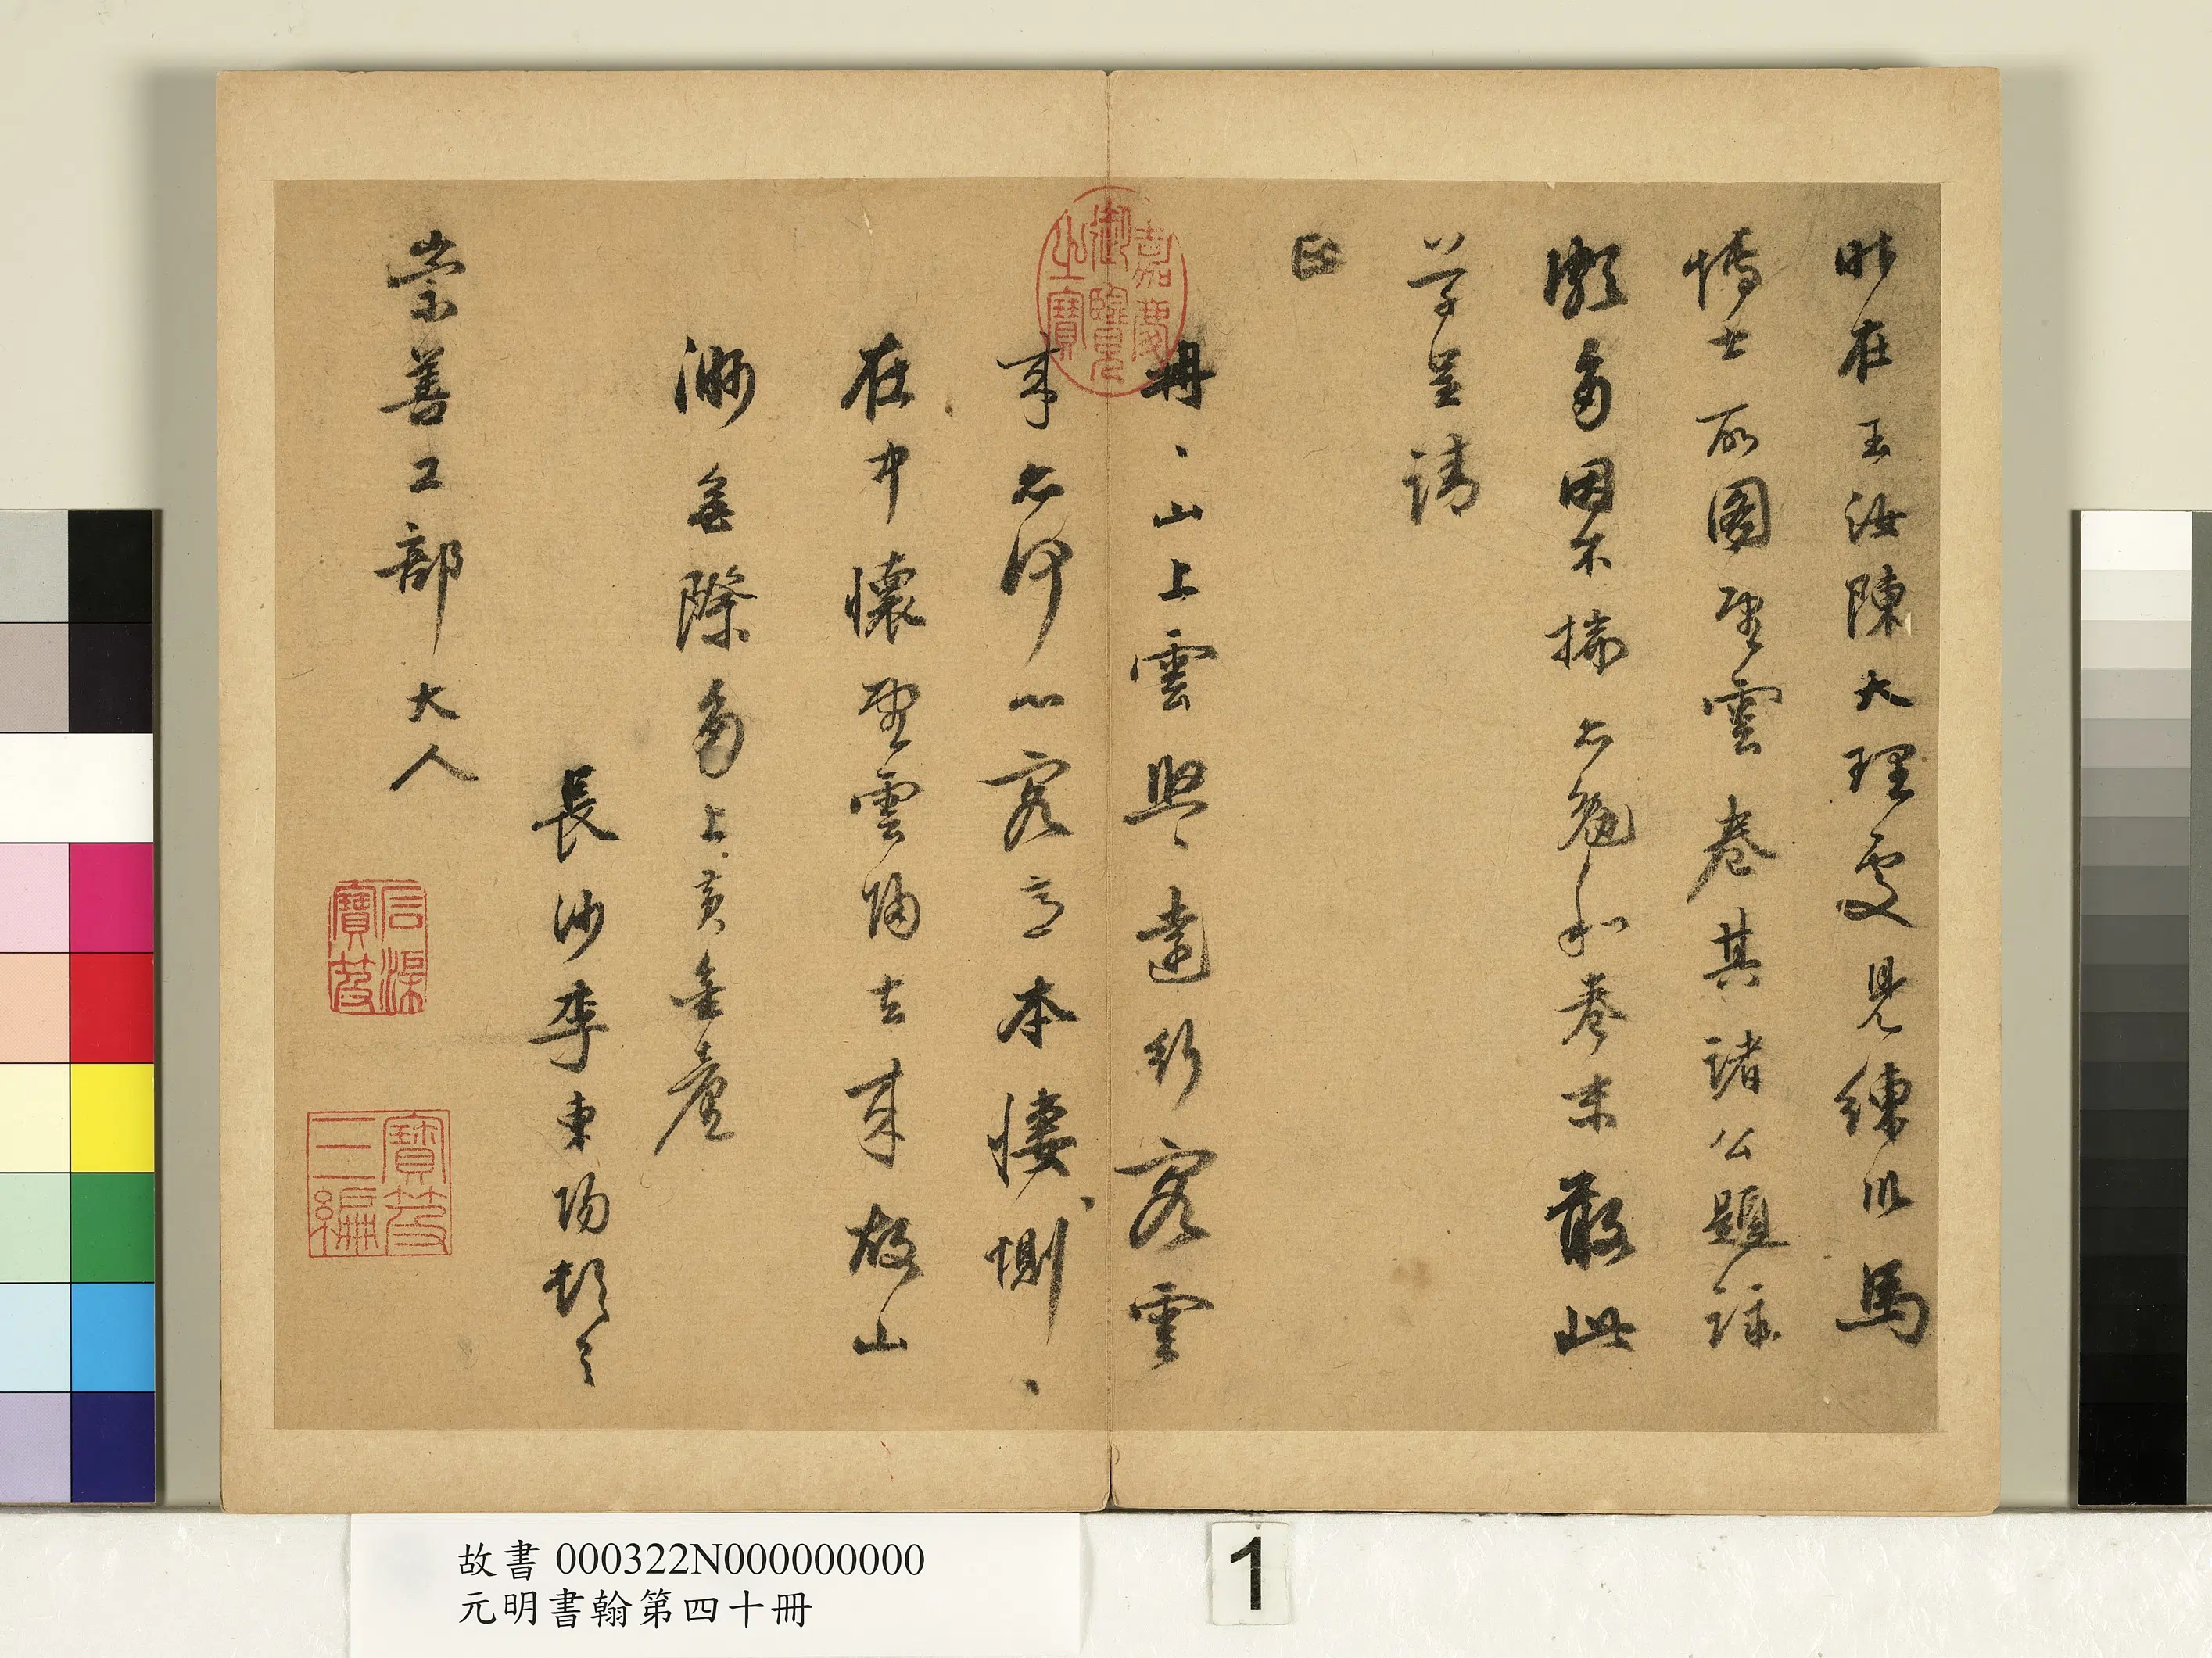 昨在玉汝陳大理處見練川馬
博士所圖望雲卷其諸公題詠
頗多因不揣亦勉和卷末敢此
草呈請
正
冉、山上雲照、遠行客雲
來亦何心客意本悽、惻、
在中懷望雲陽去來故山
渺無際多上黃金臺
長沙李東陽頓首
崇善工部大人
嘉慶御覽之寶
石渠寶笈
寶笈三編
故書 000322N000000000
元明書翰第四十冊
1